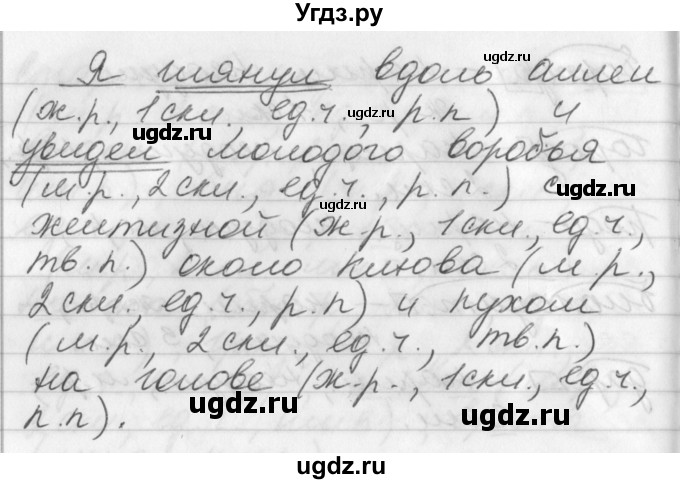 Угдз.ру
Я глянул вдоль аллеи
(ж.р., 1 скл., ед.ч., р.п) и
увидел молодого воробья
(м.р., 2 скл., ед.ч., р.п.) с
желтизной (ж.р., 1 скл., ед.ч.,
тв.п.) около клюва (м.р.,
2 скл., ед.ч., р.п) и пухом
(м.р., 2 скл., ед.ч., тв.п.)
на голове (ж.р., 1 скл., ед.ч.,
п.п).
ugdz.ru
ugdz.ru
ugdz.ru
ugdz.ru
ugdz.ru
ugdz.ru
ugdz.ru
ugdz.ru